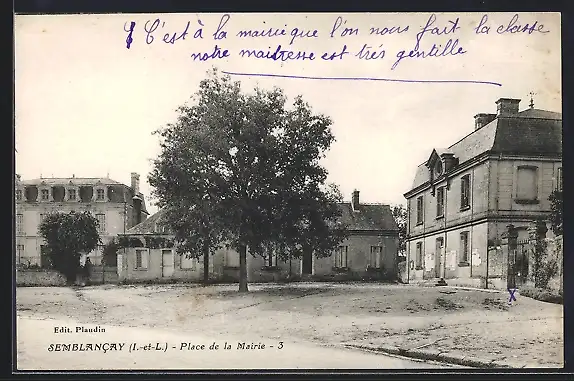 C'est à la mairie que l'on nous fait la classe
notre maitresse est très gentille
x
Edit. Plaudin
SEMBLANÇAY (I.-et-L.) - Place de la Mairie - 3